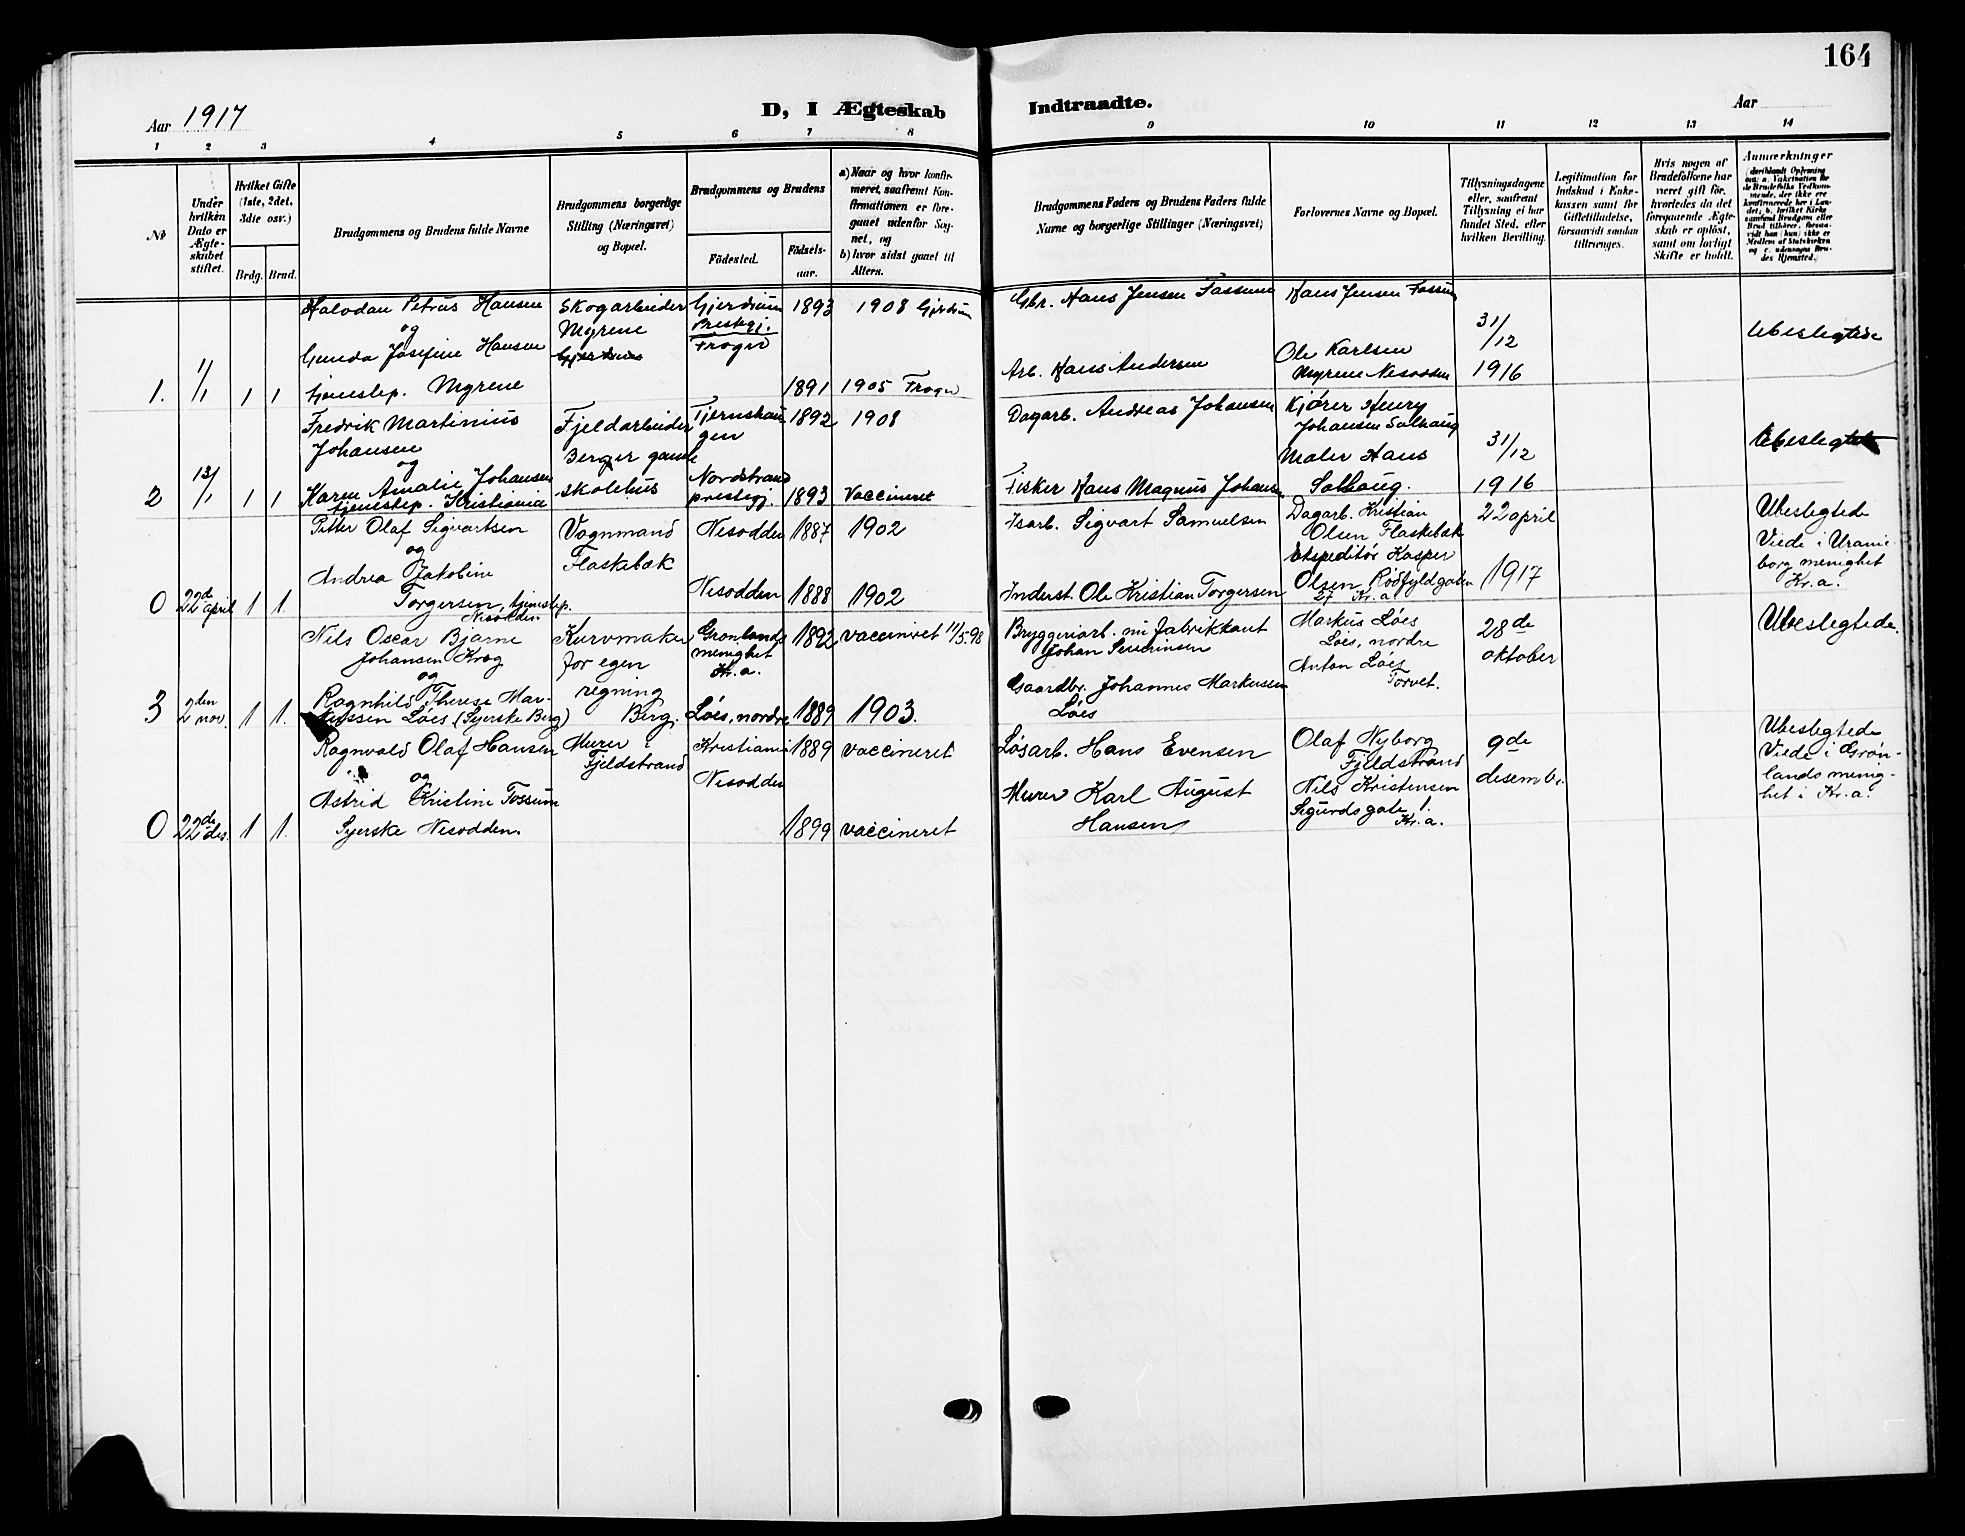 164
Aar 1917
D, I Ægteskab
Indtraadte.
Aar
1 2 3 4 5 6 7 8 9 10 11 12 13 14
№
Under
hvilken
Dato er
Ægte-
skabet
stiftet.
Hvilket Gifte
(1ste, 2det,
3die osv.)
Brdg. Brud.
Brudgommens og Brudens fulde Navne
Brudgommens borgerlige
Stilling (Næringsvei)
og Bopæl.
Brudgommens og Brudens
Födested.
Födsels-
aar.
a) Naar og hvor konfir-
meret, saafremt Kon-
firmationen er fore-
gaaet udenfor Sog-
net, og
b) hvor sidst gaaet til
Alters.
Brudgommens Faders og Brudens Faders fulde
Navne og borgerlige Stillinger (Næringsvei)
Forlovernes Navne og Bopæl.
Tillysningsdagene
eller, saafremt
Tillysning ei har
fundet Sted, efter
hvilken Bevilling.
Legitimation for
Indskud i Enke-
kassen samt for
Giftetilladelse,
forsaavidt saadan
tiltrænges.
Hvis nogen af
Brudefolkene har
været gift för,
hvorledes da det
foregaaende Ægte-
skab er oplöst,
samt om lovligt
Skifte er holdt.
Anmærkninger
1. 1/1 1 1
Halvdan Petrus Hansen
og
Gunda Josefine Hansen
tjenestep. Myrene
Skogarbeider
Myrene
Gjerdrum
Prestegj.
Frogn
1893
1891
1908 Gjerdrum
1905 Frogn
Gbr. Hans Jensen Fossum
Arb. Hans Andersen
Hans Jensen Fossum
Ole Karlsen
Myrene Nesodden
31/12
1916
Ubeslegtede
2 13/1 1 1
Fredrik Martinius
Johansen
og
Karen Amalie Johansen
tjenestep. Kristiania
Fjeldarbeider
Berger gamle
skolehus
Nordstrand
prestegj.
1892
1893
1908
Vaccineret
Dagarb. Andreas Johansen
Fisker Hans Magnus Johansen
Kjører Henry
Johansen Solhaug
Maler Hans
Solhaug.
31/12
1916
Ubeslegtede
0 22de april 1 1.
Petter Olaf Sigvartsen
og
Andrea Jakobine
Torgersen, tjenestep.
Nesodden
Vognmand
Flaskebæk
Nesodden
Nesodden
1887
1888
1902
1902
Isarb. Sigvart Samuelsen
Inderst. Ole Kristian Torgersen
Dagarb. Kristian
Olsen Flaskebæk
Ekspeditør Kasper
Olsen Rødfyldgaten
27 Kr.a
22 april
1917
Ubeslegtede
Viede i Uranie-
borg menighet
Kr.a.
3 2den nov. 1 1.
Nils Oscar Bjarne
Johansen Krog
og
Ragnhild Therese Mar-
kussen Løes (Syerske Berg)
Kurvmaker
for egen
regning
Berg.
Grønlands
menighet
Kr.a.
Løes, nordre
1892
1889
vaccineret 11/5.98
1903.
Bryggeriarb. nu fabrikkant
Johan Severinsen
Gaardbr. Johannes Markussen
Løes
Markus Løes
Løes, nordre
Anton Løes
Torvet.
28de
oktober
Ubeslegtede.
0 22de des. 1 1.
Ragnvald Olaf Hansen
og
Astrid Kristine Fossum
Syerske Nesodden.
Murer i
Fjeldstrand
Kristiania
Nesodden
1889
1899
vaccineret
vaccineret
Løsarb. Hans Evensen
Murer Karl August
Hansen
Olaf Nyborg
Fjeldstrand
Nils Kristensen
Sigurdsgate 1.
Kr.a.
9de
desembr.
Ubeslegtede
Viede i Grøn-
lands menig-
het i Kr.a.